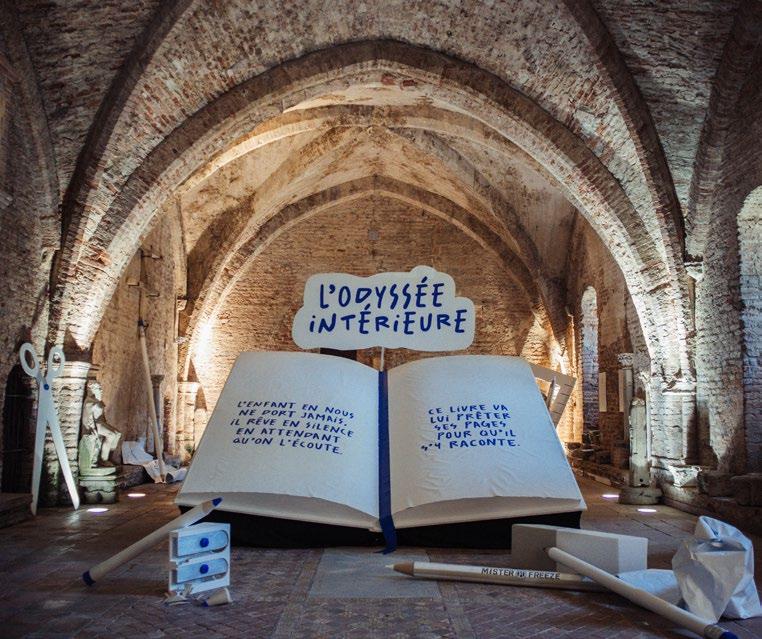 L'ODYSSÉE
iNTÉRiEURE
L'ENFANT EN NOUS
NE DORT JAMAIS.
IL RÊVE EN SILENCE
EN ATTENDANT
QU'ON L'ÉCOUTE.
CE LIVRE VA
LUI PRÊTER
SES PAGES
POUR QU'IL
S'Y RACONTE.
MISTER FREEZE